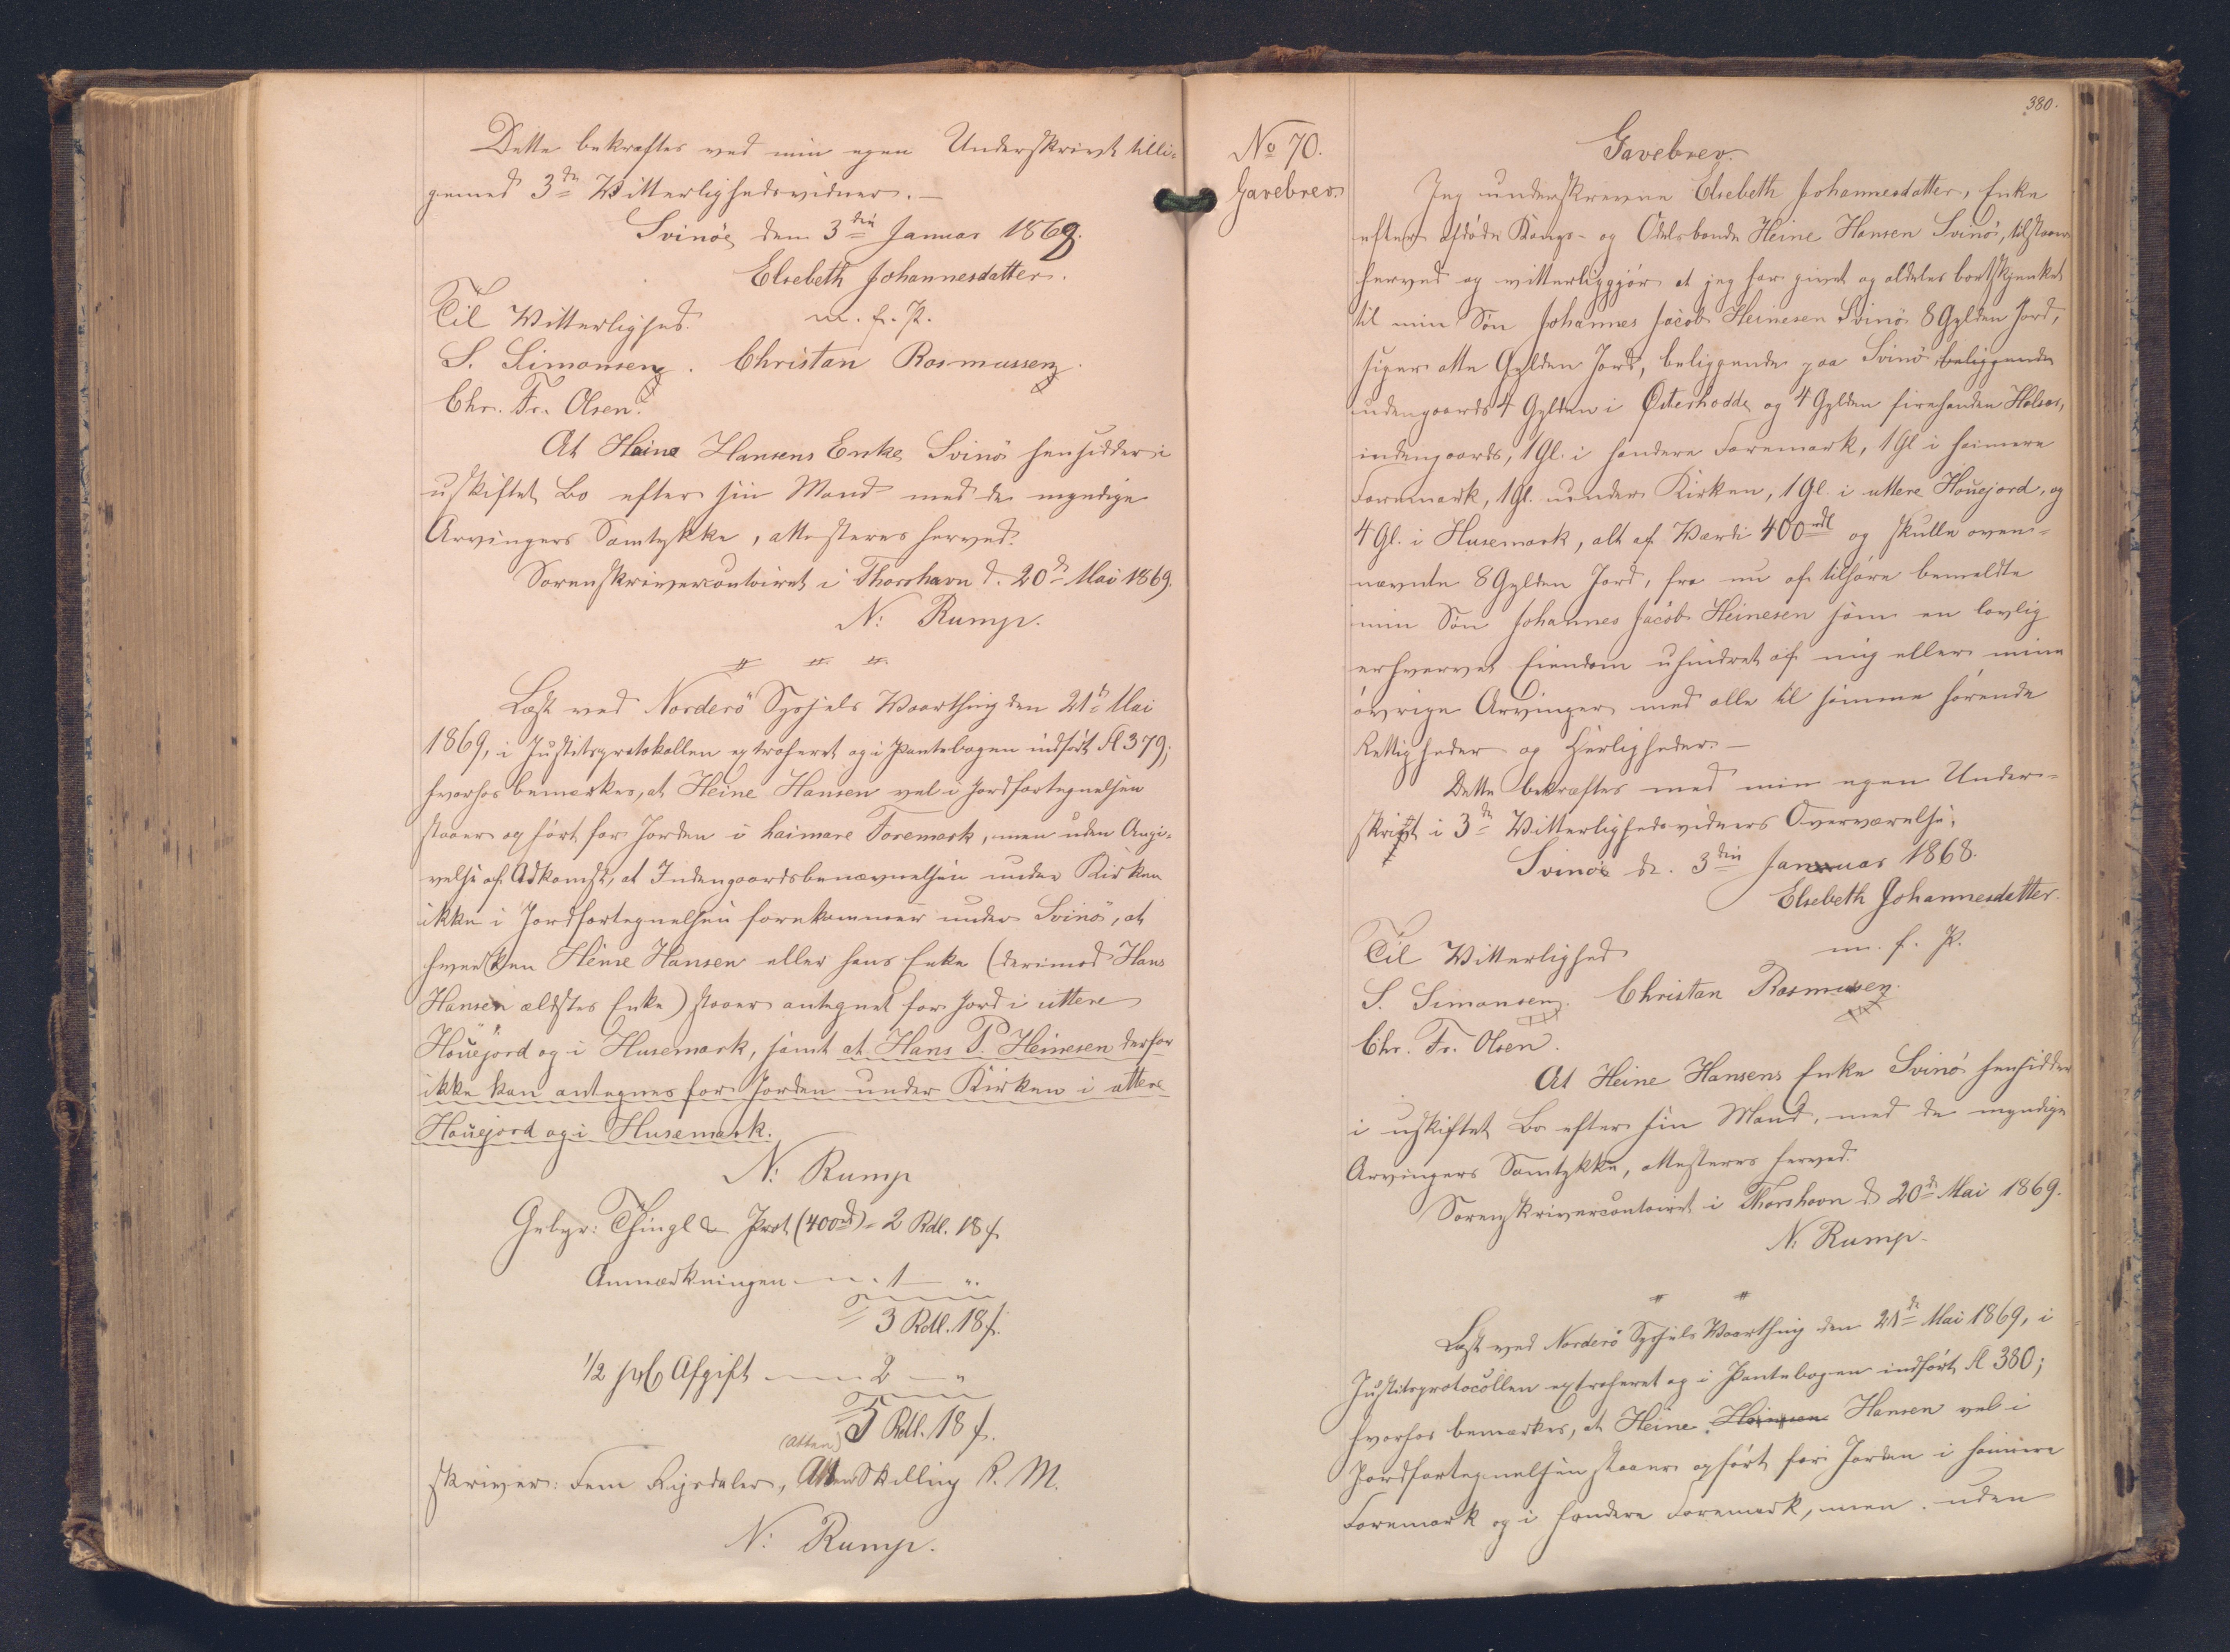 Dette bekræftes ved min egen Underskrivt tilli-
gemed 3de Vitterlighedsvidner. —
Svinöe den 3die Januar 1868.
Elsebeth Johannesdatter.
m. f. P.
Til Vitterlighed.
S. Simonsen. Christan Rasmussen.
Chr. Fr. Olsen.
At Heine Hansens Enke Svinö hensidder i
uskiftet Bo efter sin Mand med de myndige
Arvingers Samtykke, attesteres herved.
Sorenskrivercontoiret i Thorshavn d. 20de Mai 1869.
N. Rump.
Læst ved Norderö Syssels Vaarthing den 21de Mai
1869, i Justitsprotokollen extraheret og i Pantebogen indført Fl 379;
hvorhos bemærkes, at Heine Hansen vel i Jordfortegnelsen
staaer opført for Jorden i haimare Foremark, men uden Angi-
velse af Adkomst, at Indengaardsbenævnelsen under Kirken
ikke i Jordfortegnelsen forekommer under Svinö, at
hverken Heine Hansen eller hans Enke (derimod Hans
Hansen ældstes Enke) staaer antegnet for Jord i uttere
Höuejord og i Husemark, samt at Hans P. Heinesen derfor
ikke kan antegnes for Jorden under Kirken i uttere
Höuejord og i Husemark.
N. Rump
Gebyr: Thingl & Prot (400rd) = 2 Rdl. 18 s.
Anmærkningen — 1 — "
3 Rdl. 18 s.
1/2 pC Afgift — 2 — "
5 Rdl. 18 s.
(Atten)
skriver: Fem Rigsdaler, Atten Skilling R. M.
N. Rump.
380.
No 70.
Gavebrev.
Gavebrev.
Jeg underskrevne Elsebeth Johannesdatter, Enke
efter afdøde Kongs- og Odelsbonde Heine Hansen Svinö, tilstaaer
herved og vitterliggjør at jeg har givet og aldeles bortskjenket
til min Søn Johannes Jacob Heinesen Svinö 8 Gylden Jord,
siger otte Gylden Jord, beliggende paa Svinö beliggende
udengaards 4 Gylden i Østerhodde og 4 Gylden firehanden Halsar,
indengaards, 1 Gl. i handere Foremark, 1 Gl i haimere
Foremark, 1 Gl. under Kirken, 1 Gl. i uttere Höuejord, og
4 Gl. i Husemark, alt af Værdi 400 rdl og skulle oven-
nævnte 8 Gylden Jord, fra nu af tilhøre bemeldte
min Søn Johannes Jacob Heinesen som en lovlig
erhvervet Eiendom uhindret af mig eller mine
øvrige Arvinger med alle til samme hørende
Rettigheder og Herligheder. —
Dette bekræftes med min egen Under-
skrift i 3de Vitterlighedsvidners Overværelse.
Svinöe d. 3die Januar 1868.
Elsebeth Johannesdatter.
m. f. P.
Til Vitterlighed
S. Simonsen. Christan Rasmusen.
Chr. Fr. Olsen.
At Heine Hansens Enke Svinö hensidder
i uskiftet Bo efter sin Mand, med de myndige
Arvingers Samtykke, attesteres herved.
Sorenskrivercontoiret i Thorshavn d. 20de Mai 1869.
N. Rump.
Læst ved Norderö Syssels Vaarthing den 21de Mai 1869, i
Justitsprotocollen extraheret og i Pantebogen indført Fl 380;
hvorhos bemærkes, at Heine Hansen vel i
Jordfortegnelsen staaer opført for Jorden i haimere
Foremark og i handere Foremark, men uden